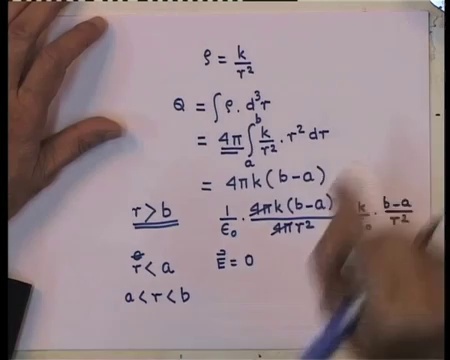 ρ = k/r²
Q = ∫ ρ. d³r
= 4π ∫ₐᵇ k/r² · r² dr
= 4πk(b-a)
r>b 1/ε₀ · 4πk(b-a)/4πr² k/₀ · b-a/r²
r<a E⃗=0
a<r<b